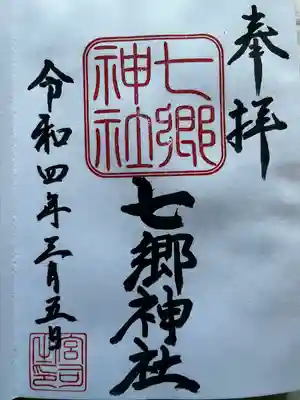 奉拝
七郷
神社
七郷神社
令和四年三月五日
宮司
之印